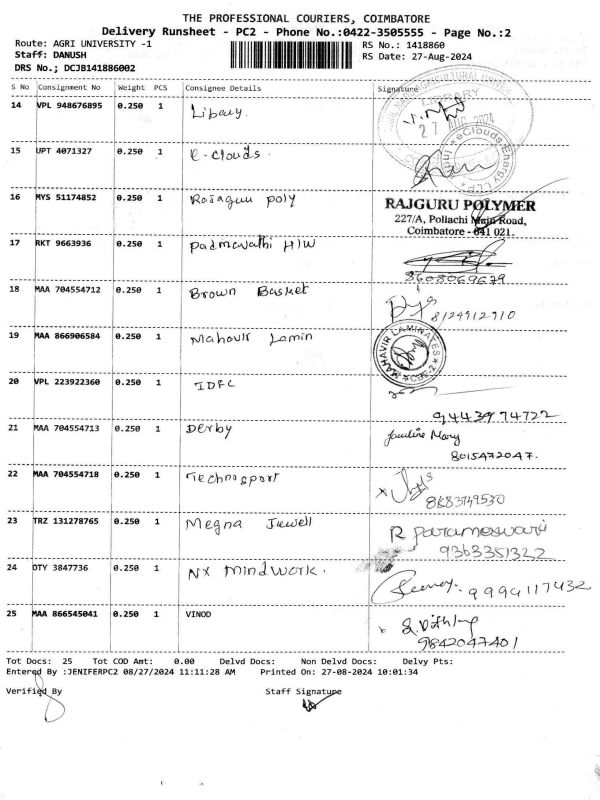 THE PROFESSIONAL COURIERS, COIMBATORE
Delivery Runsheet - PC2 - Phone No.:0422-3505555 - Page No.:2
Route: AGRI UNIVERSITY -1
RS No.: 1418860
Staff: DANUSH
RS Date: 27-Aug-2024
DRS No.; DCJB141886002
S No Consignment No Weight PCS Consignee Details Signature
14 VPL 948676895 0.250 1 Libary.
LIBRARY
27 AUG 2024
15 UPT 4071327 0.250 1 e-clouds.
eClouds Energy LLP
16 MYS 51174852 0.250 1 Rajaguu poly
RAJGURU POLYMER
227/A, Pollachi Main Road,
Coimbatore - 641 021.
17 RKT 9663936 0.250 1 Padmavathi H/W
8608069639
18 MAA 704554712 0.250 1 Brown Basket
8124912910
19 MAA 866906584 0.250 1 Mahavir Lamin
MAHAVIR LAMINATES
CBE-2
20 VPL 223922360 0.250 1 IDFC
9443974722
21 MAA 704554713 0.250 1 Derby
Jauline Mary
8015472047.
22 MAA 704554718 0.250 1 Technosport
8883749530
23 TRZ 131278765 0.250 1 Megna Jewell
R Parameswari
9363351322
24 OTY 3847736 0.250 1 NX Mindwork.
9994117432
25 MAA 866545041 0.250 1 VINOD
9842047401
Tot Docs: 25 Tot COD Amt: 0.00 Delvd Docs: Non Delvd Docs: Delvy Pts:
Entered By :JENIFERPC2 08/27/2024 11:11:28 AM Printed On: 27-08-2024 10:01:34
Verified By Staff Signature